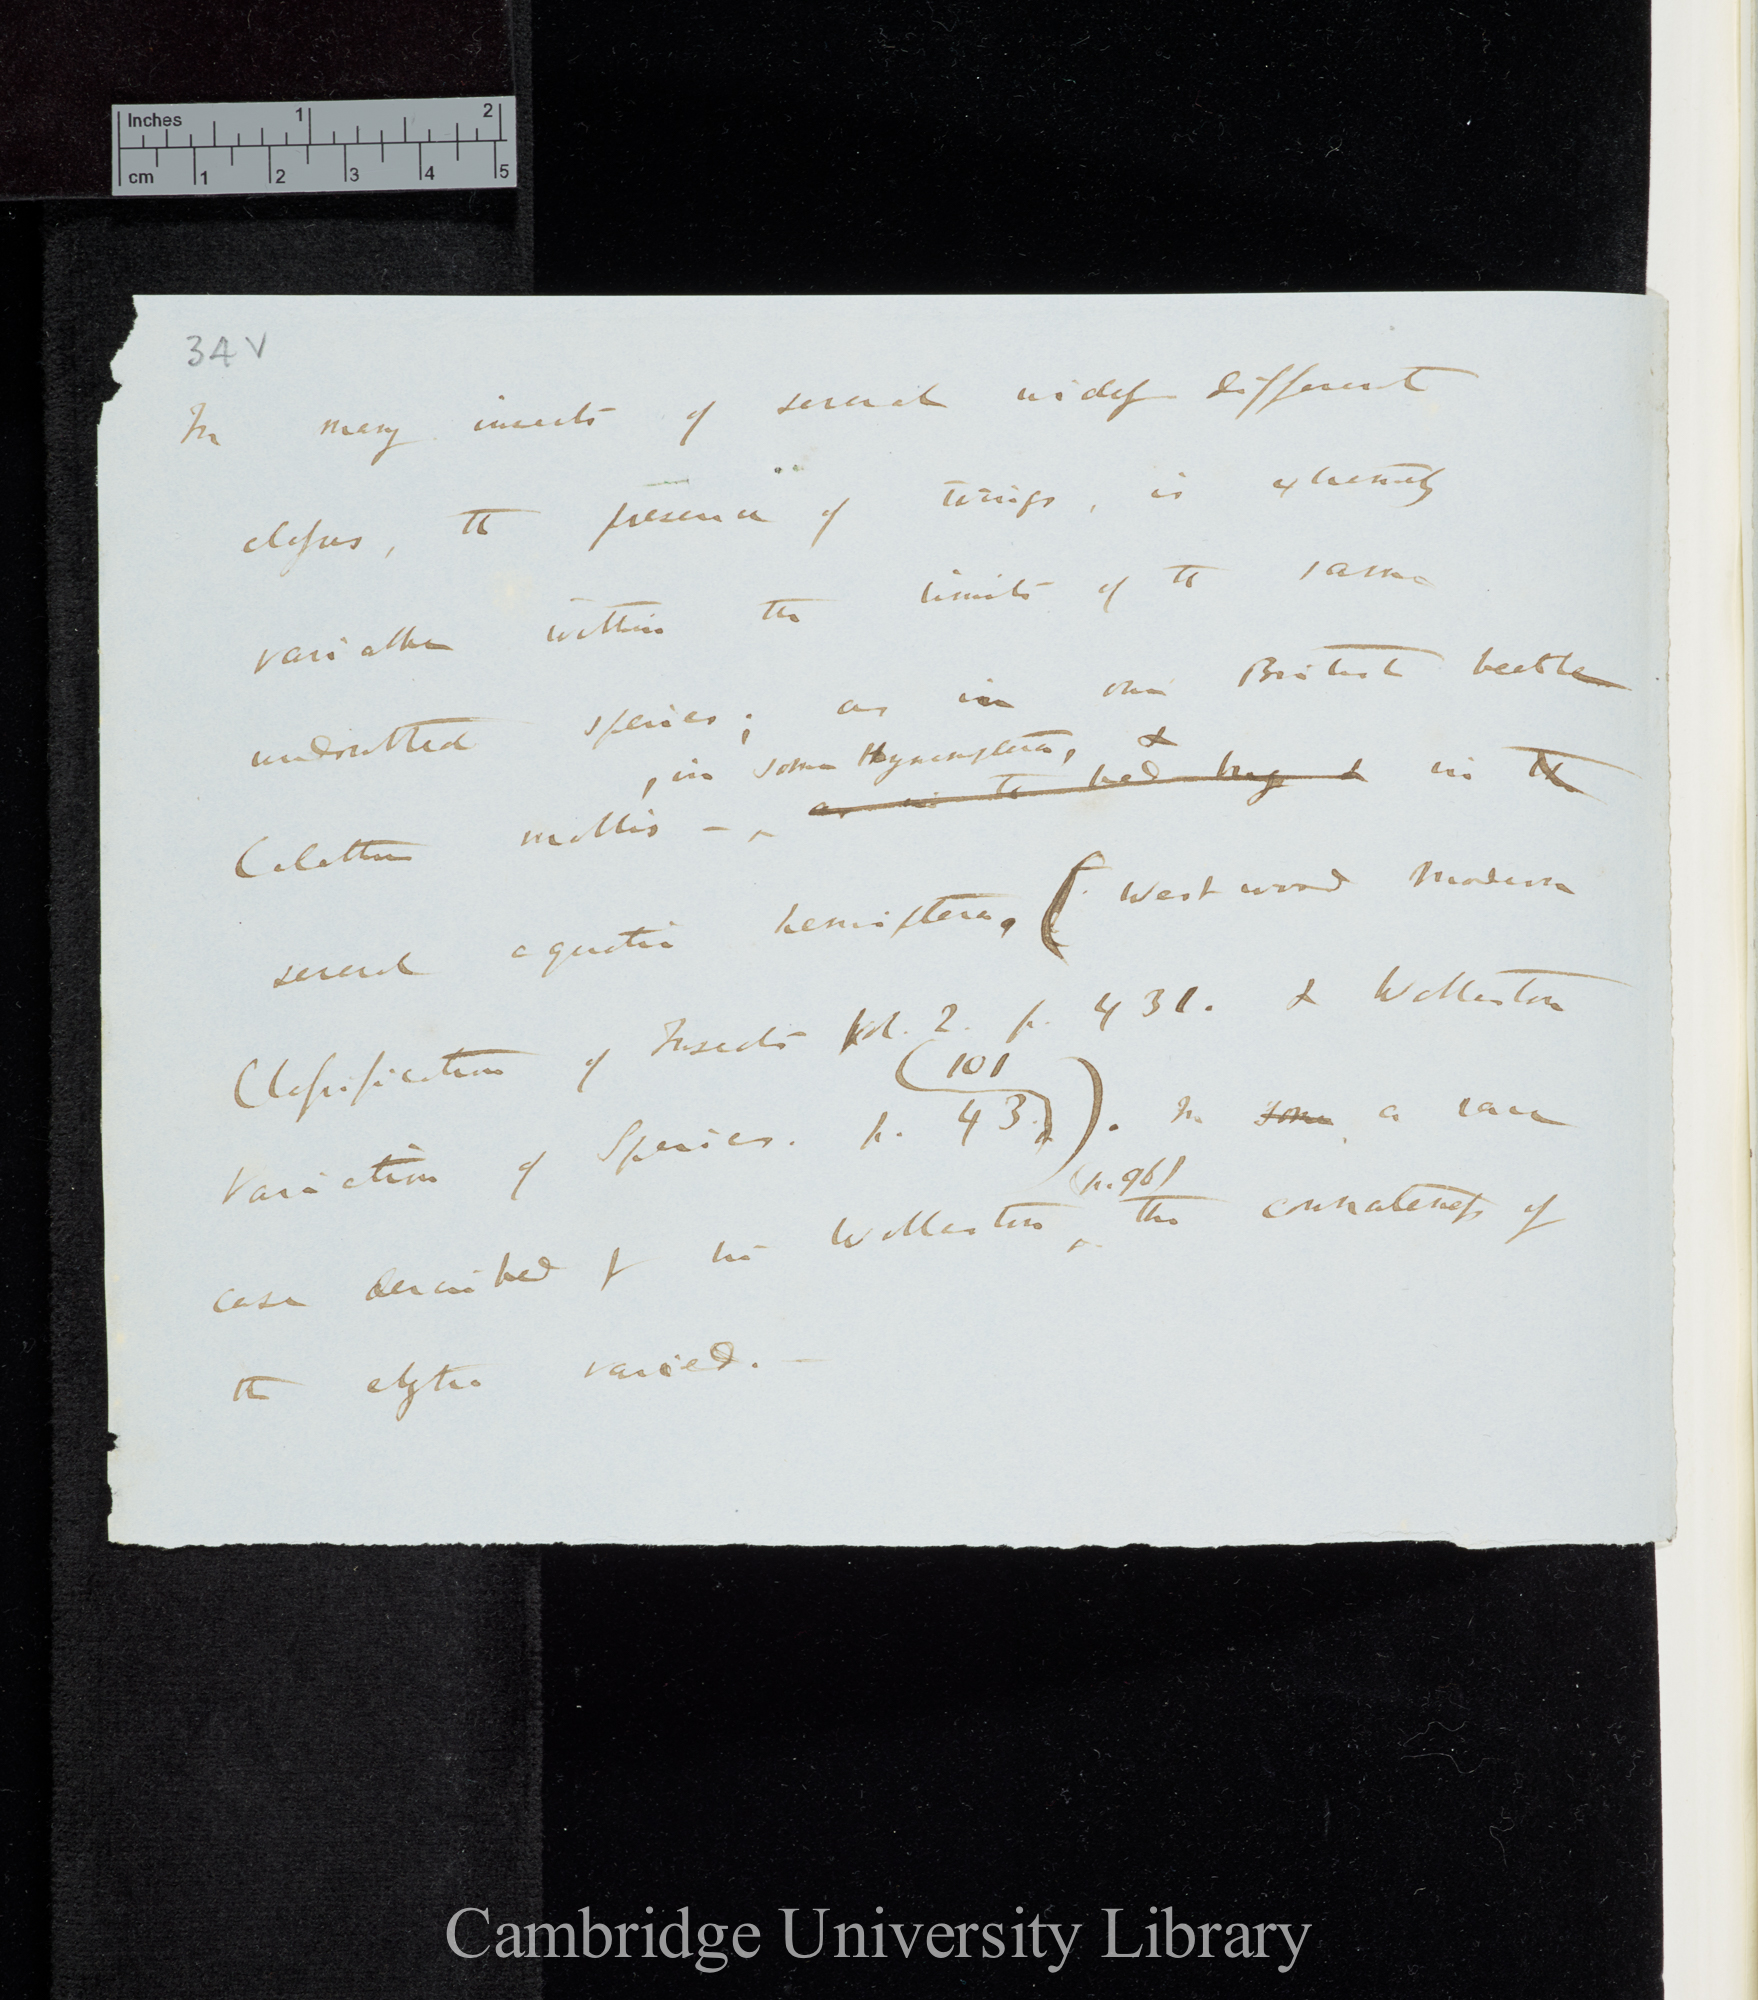 Inches 1 2
cm 1 2 3 4 5
34 V
In many insects of several widely different
classes, the presence of wings, is extremely
variable within the limits of the same
undoubted species; as in our British beetle
, in some Hymenoptera, &
Calathus mollis – , as in the bed bug & in the
several aquatic hemiptera, ( Westwood Modern
Classification of Insects Vol. 2. p. 431. & Wollaston
(101
Variation of Species. p. 43.) ). In some a rare
(p. 96)
case described by Wollaston, the connateness of
the elytra varied. –
Cambridge University Library